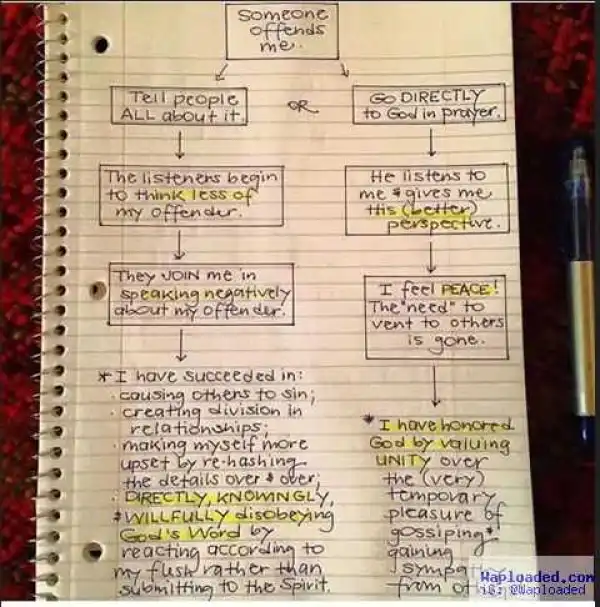 Someone
offends
me.
Tell people
ALL about it.
OR
Go DIRECTLY
to God in prayer.
The listeners begin
to think less of
my offender.
He listens to
me & gives me
His (better)
perspective.
They JOIN me in
speaking negatively
about my offender.
I feel PEACE!
The "need" to
vent to others
is gone.
* I have succeeded in:
· causing others to sin;
· creating division in
relationships;
· making myself more
upset by re-hashing
the details over & over;
· DIRECTLY, KNOWINGLY,
& WILLFULLY disobeying
God's Word by
reacting according to
my flesh rather than
submitting to the Spirit.
* I have honored
God by valuing
UNITY over
the (very)
temporary
pleasure of
gossiping &
gaining
from
Waploaded.com
IG: @Waploaded